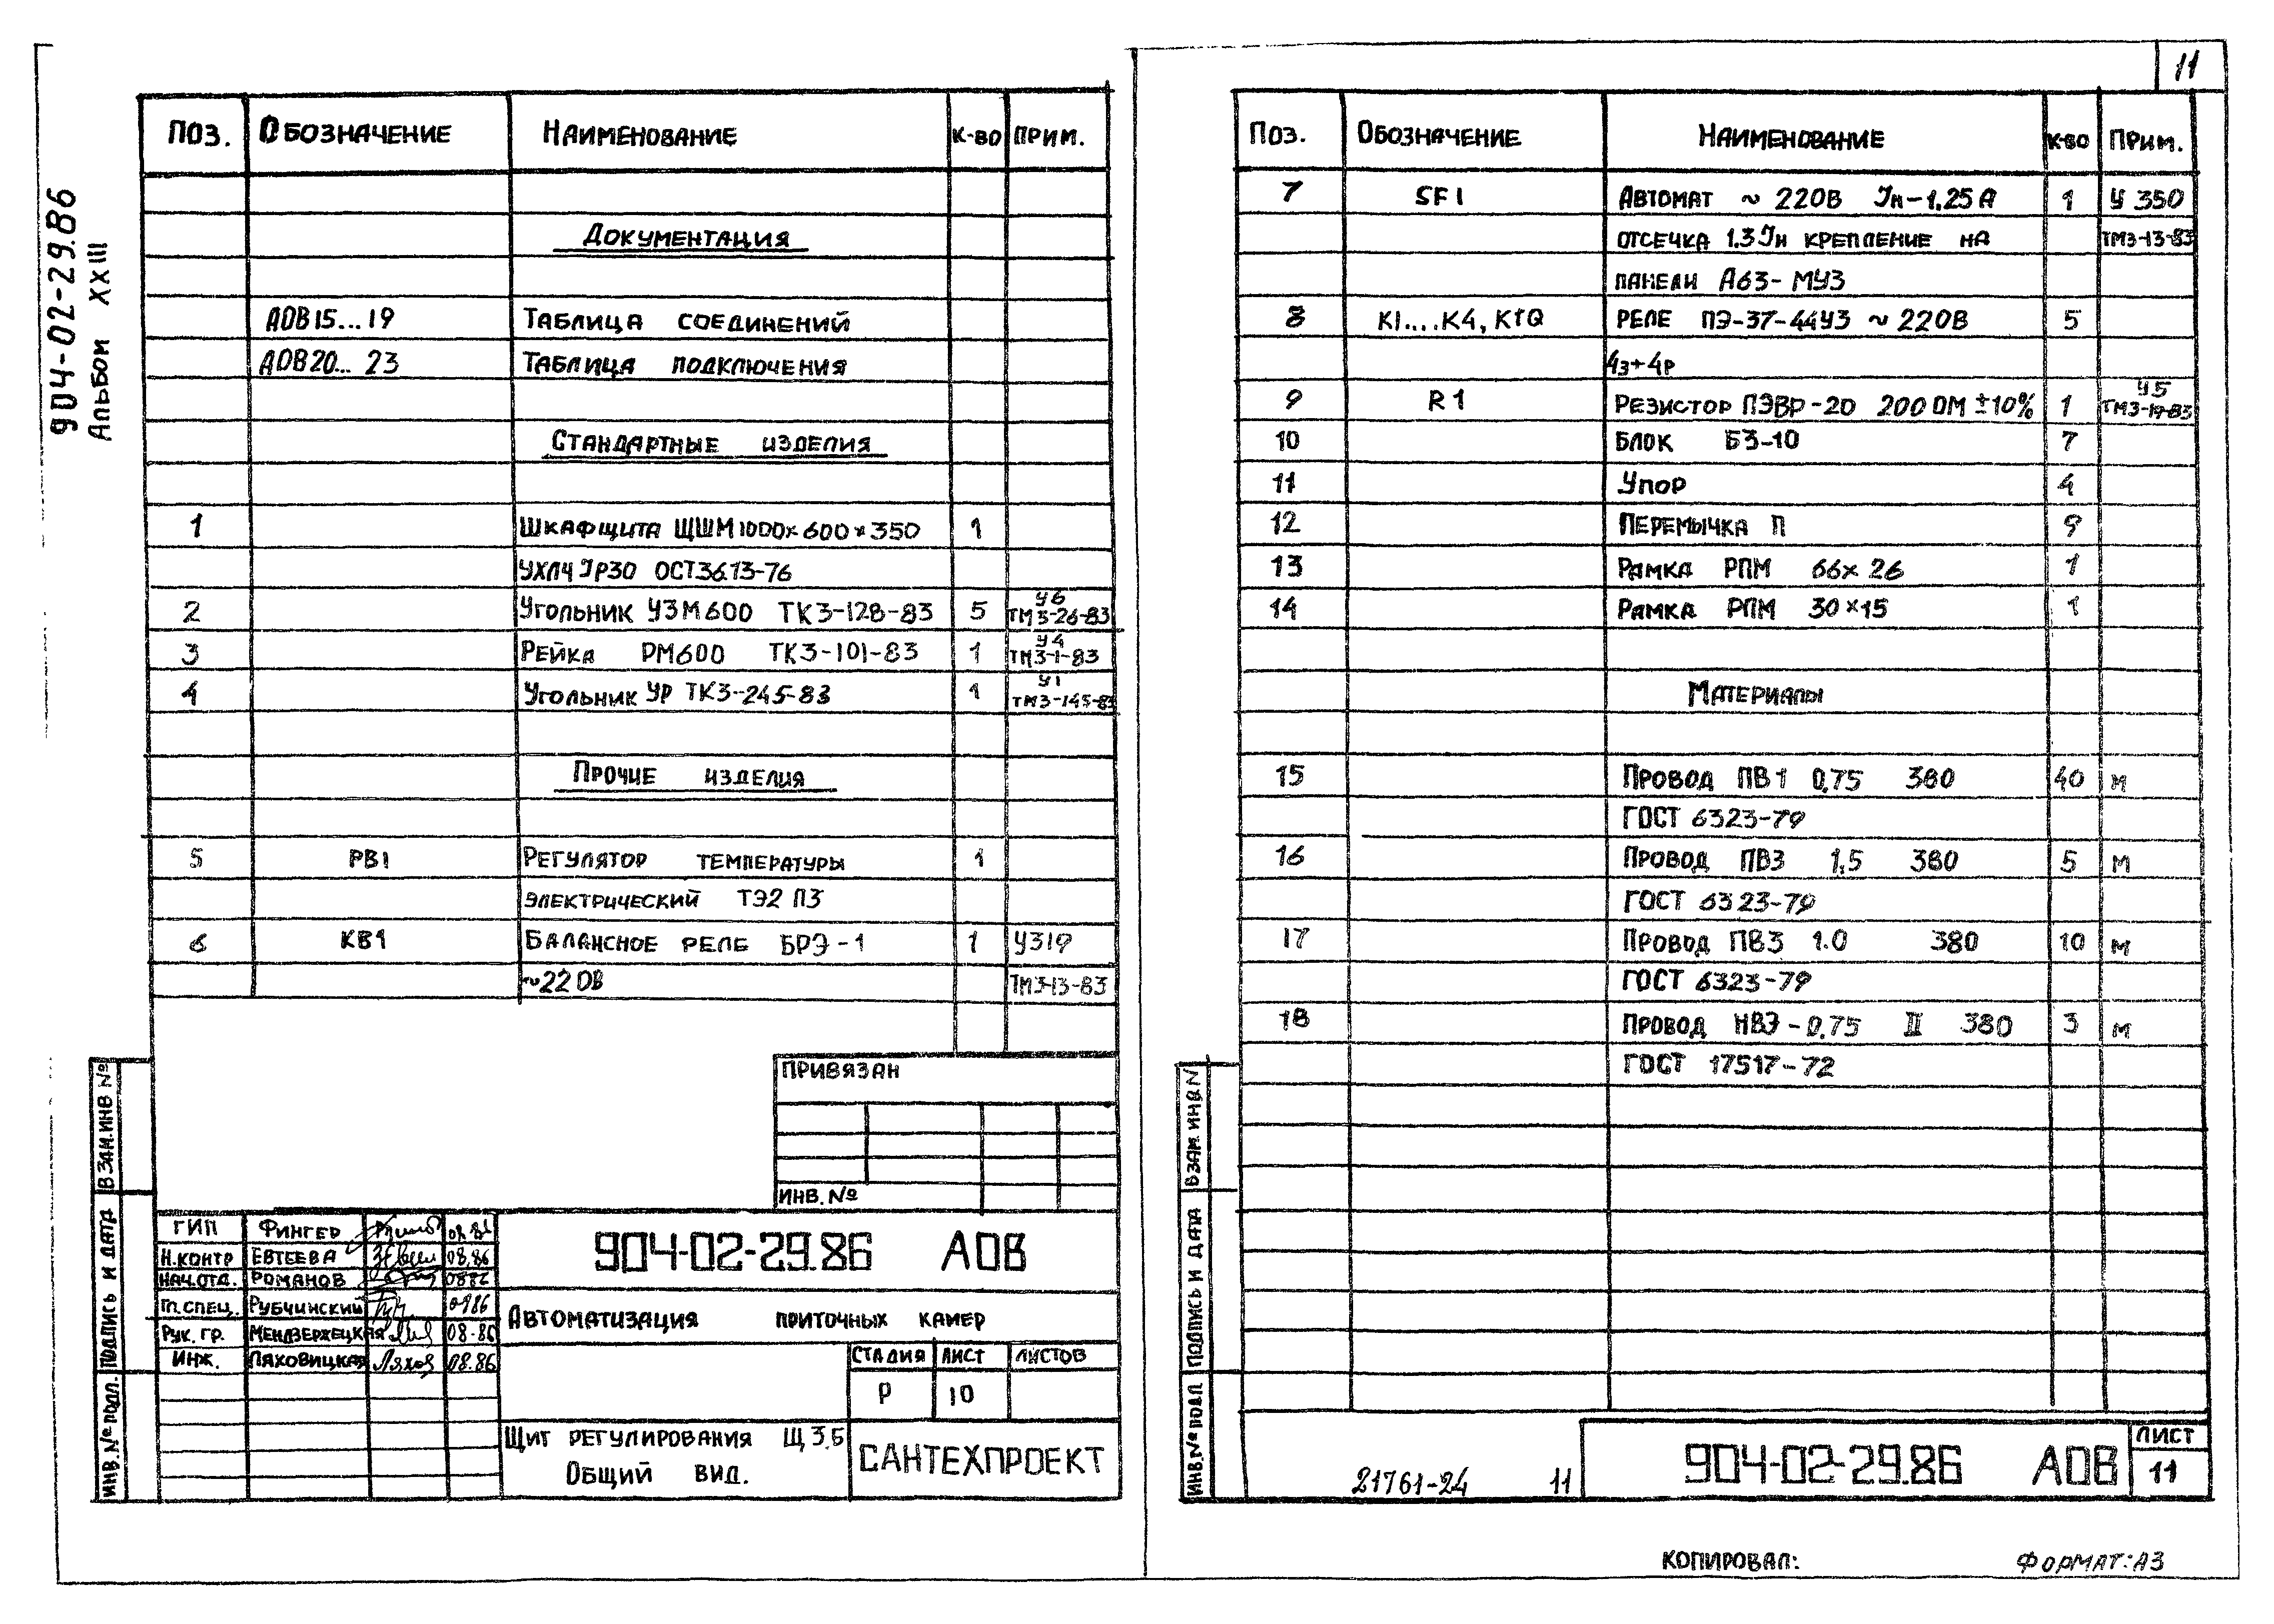 904-02-29.86
Альбом XXIII
11
Поз. Обозначение Наименование К-во Прим.
Документация
АОВ15...19 Таблица соединений
АОВ20...23 Таблица подключения
Стандартные изделия
1 Шкаф щита ЩШМ 1000×600×350 1
УХЛ4 IP30 ОСТ36.13-76
2 Угольник УЗМ600 ТК3-128-83 5 У6 ТМ3-26-83
3 Рейка РМ600 ТК3-101-83 1 У4 ТМ3-1-83
4 Угольник УР ТК3-245-83 1 У1 ТМ3-145-83
Прочие изделия
5 РВ1 Регулятор температуры 1
электрический ТЭ2П3
6 КВ1 Балансное реле БРЭ-1 1 У319
~220В ТМ3-13-83
Привязан
Инв.№
ГИП Фингер 08.86
Н.контр Евтеева 08.86
Нач.отд. Романов 0886
Гл.спец. Рубчинский
Рук. гр. Мендзержецкая 08-86
Инж. Ляховицкая 08.86
904-02-29.86 АОВ
Автоматизация приточных камер
Стадия Лист Листов
Р 10
Щит регулирования Щ3.Б
Общий вид.
САНТЕХПРОЕКТ
Взам.инв №
Подпись и дата
Инв.№ подл.
Поз. Обозначение Наименование К-во Прим.
7 SF1 Автомат ~ 220В Iн-1.25А 1 У 350
отсечка 1.3Iн крепление на ТМ3-13-83
панели А63-МУ3
8 К1....К4, К10 Реле ПЭ-37-44У3 ~220В 5
4з+4р
9 R1 Резистор ПЭВР-20 200 Ом ±10% 1 У5 ТМ3-19-83
10 Блок БЗ-10 7
11 Упор 4
12 Перемычка П 9
13 Рамка РПМ 66×26 1
14 Рамка РПМ 30×15 1
Материалы
15 Провод ПВ1 0.75 380 40 м
ГОСТ 6323-79
16 Провод ПВ3 1.5 380 5 м
ГОСТ 6323-79
17 Провод ПВ3 1.0 380 10 м
ГОСТ 6323-79
18 Провод НВЭ-0.75 II 380 3 м
ГОСТ 17517-72
Взам инв N
Подпись и дата
Инв.№ подл
21761-24 11
904-02-29.86 АОВ
Лист
11
Копировал:
Формат: А3